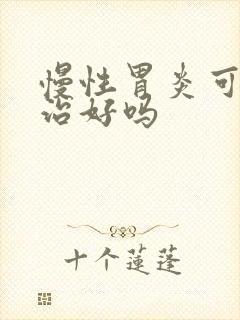 慢性胃炎可
治好吗
十个莲蓬